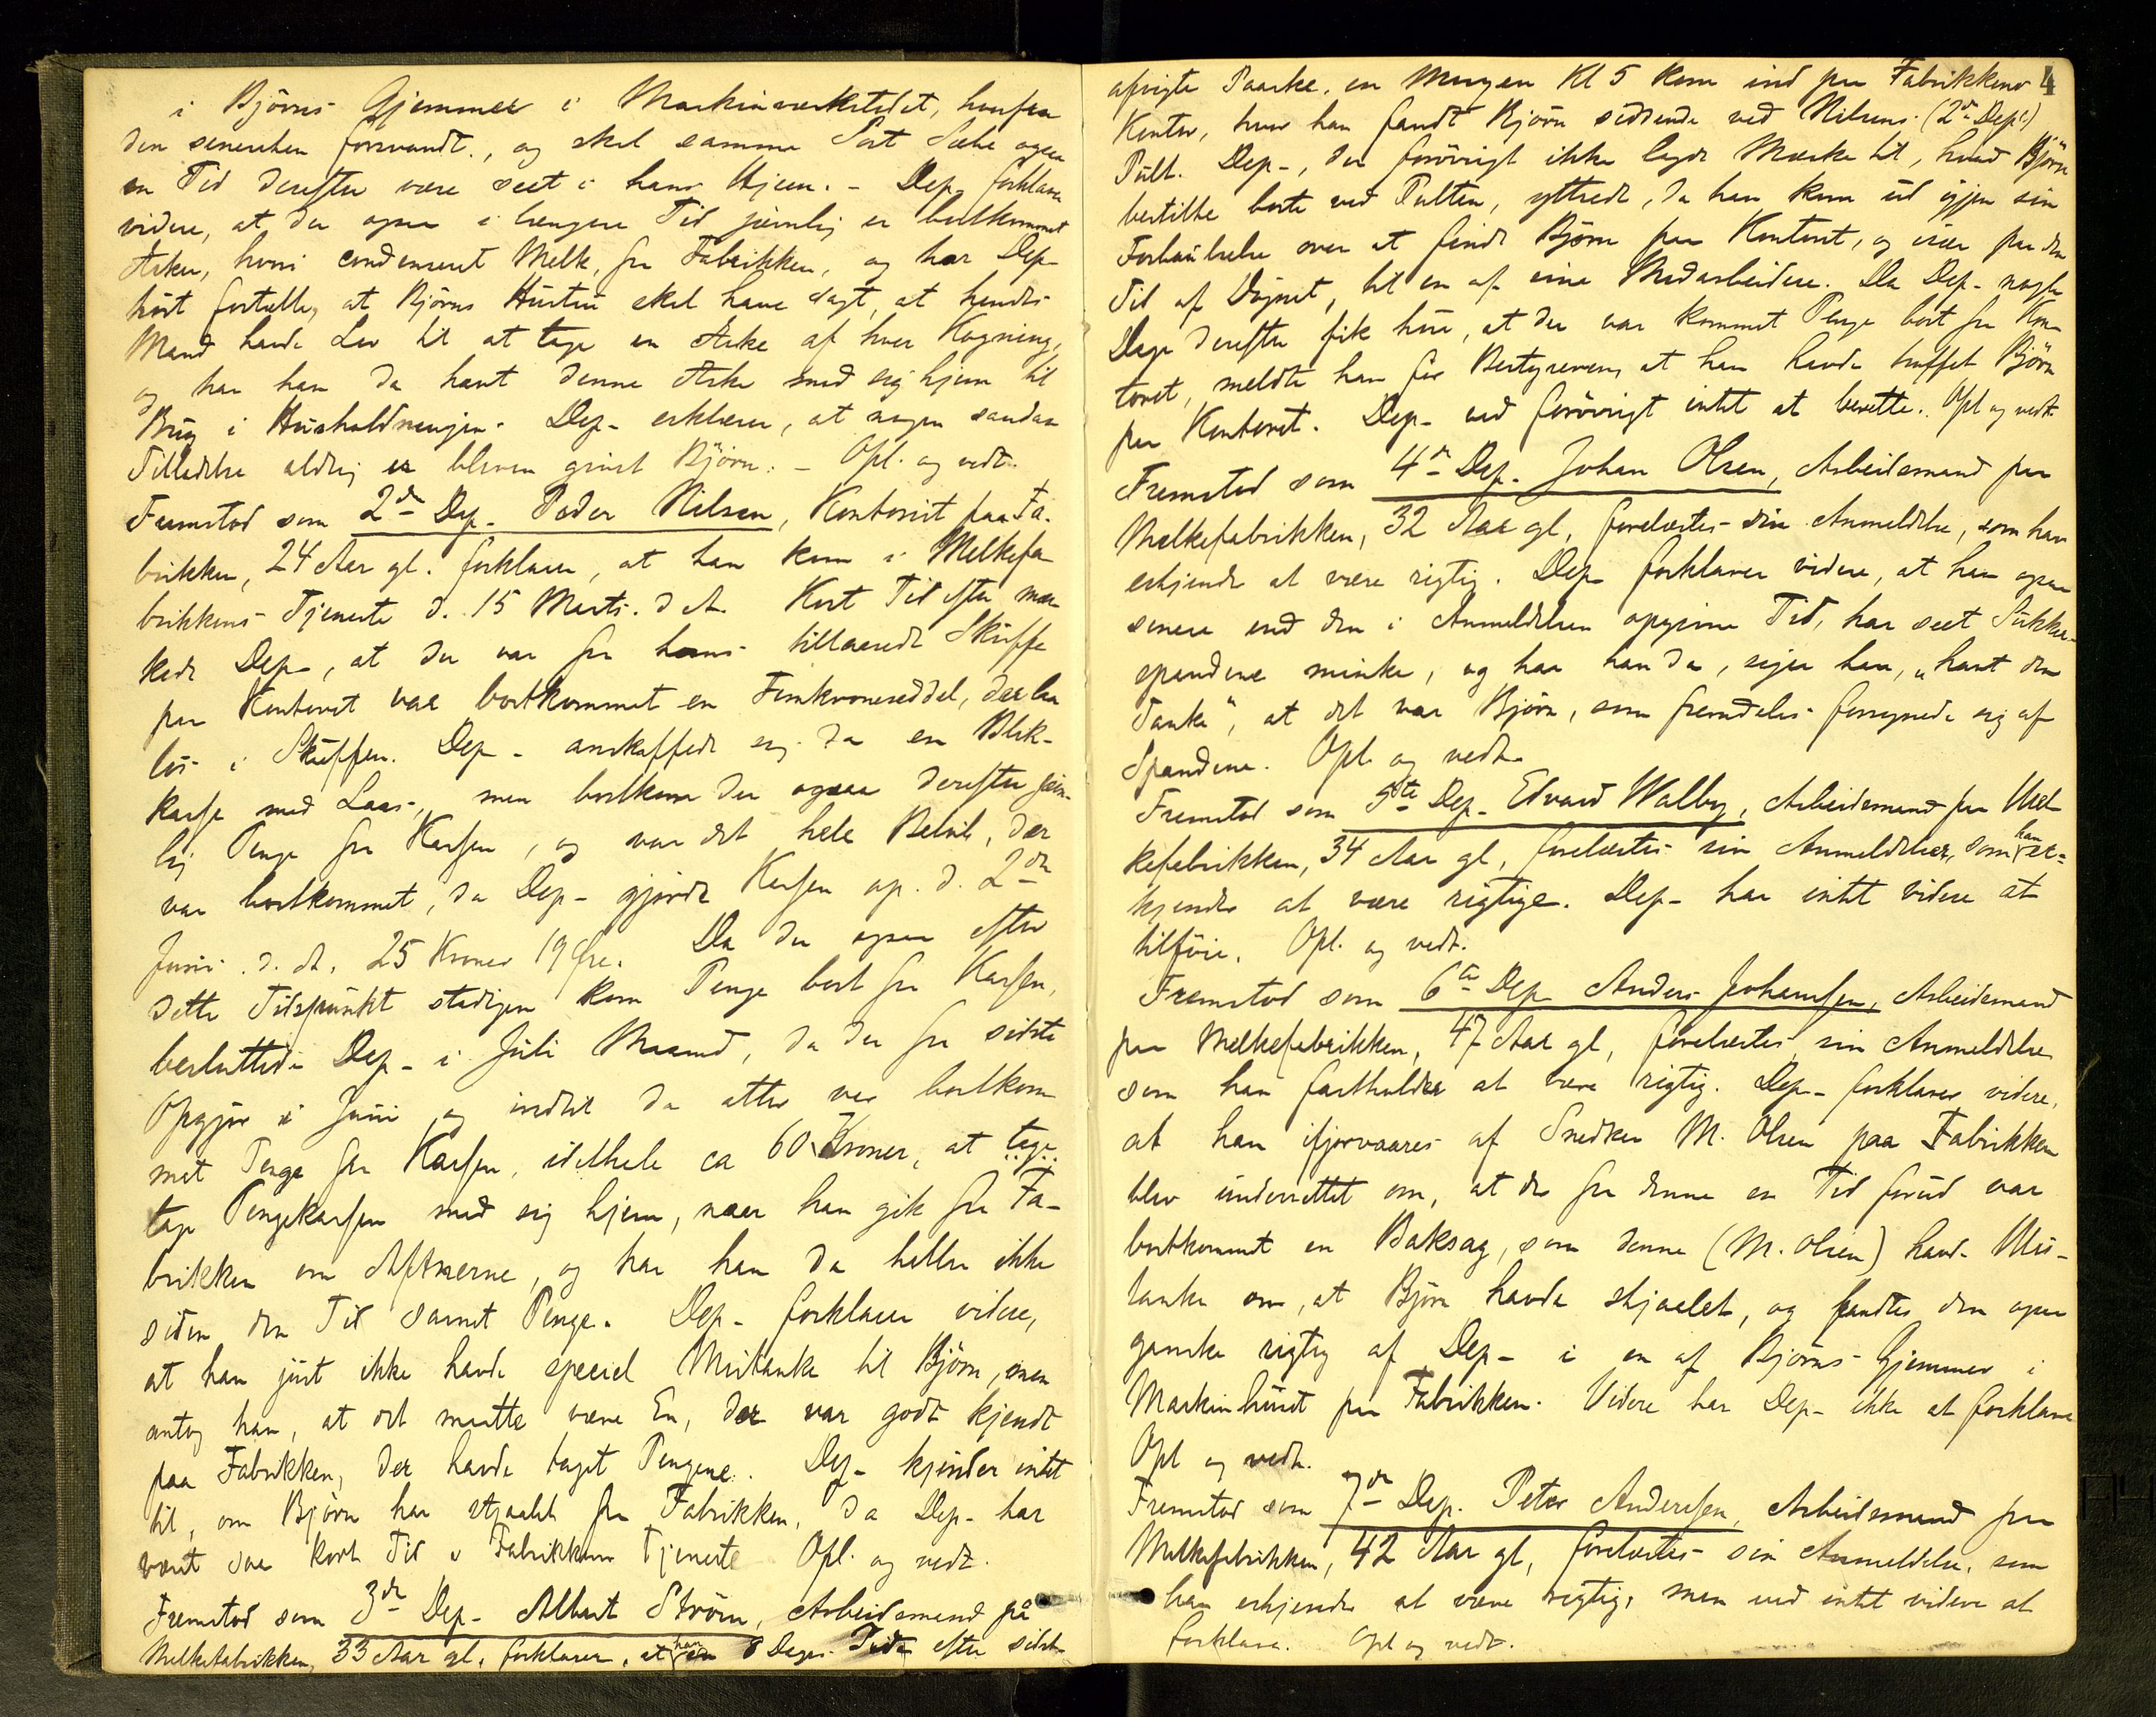 i Björns Gjemmer i Maskinværkstedet, hvorfra
den senerehen forsvandt., og skal samme Sort Sæbe ogsaa
en Tid derefter være seet i hans Hjem. - Dep. forklarer
videre, at der ogsaa i længere Tid jævnlig er bortkommet
Æsker, hvori condenseret Melk, fra Fabrikken, og har Dep-
hört fortælle, at Björns Hustru skal have sagt, at hendes
Mand havde Lov til at tage en Æske af hver Kogning,
og har han da havt denne Æske med sig hjem til
Brug i Husholdningen. Dep- erklærer, at nogen saadan
Tilladelse aldrig er bleven givet Björn. - Opl. og vedt.
Fremstod som 2de Dep- Peder Nilsen, Kontorist paa Fa-
brikken, 24 Aar gl. forklarer, at han kom i Melkefa-
brikkens Tjeneste d. 15 Marts d. A. Kort Tid efter mær-
kede Dep-, at der var fra hans tillaasede Skuffe
paa Kontoret var bortkommet en Femkroneseddel, der laa
lös i Skuffen. Dep- anskaffede sig da en Blik-
kasse med Laas, men bortkom der ogsaa derefter jævn-
lig Penge fra Kassen, og var det hele Belöb, der
var bortkommet, da Dep- gjorde Kassen op d. 2den
Juni d. A. 25 Kroner 19 Öre. Da der ogsaa efter
dette Tidspunkt stadigen kom Penge bort fra Kassen,
besluttede Dep- i Juli Maaned, da der fra sidste
Opgjör i Juni og indtil da atter var bortkom-
met Penge fra Kassen, ialthele ca 60 Kroner, at tage
tage Pengekassen med sig hjem, naar han gik fra Fa-
brikken om Aftnerne, og har han da heller ikke
siden den Tid savnet Penge. Dep- forklarer videre,
at han just ikke havde speciel Mistanke til Björn, men
antog han, at det maatte være En, der var godt kjendt
paa Fabrikken, der havde taget Pengene. Dep- kjender intet
til, om Björn har stjaalet fra Fabrikken, da Dep- har
været saa kort Tid i Fabrikkens Tjeneste Opl. og vedt.
Fremstod som 3de Dep- Albert Ström, Arbeidsmand på
Melkefabrikken, 33 Aar gl, forklarer, at han en 8 Dages Tid efter sidst-
4
afvigte Paaske, en Morgen Kl 5 kom ind paa Fabrikkens
Kontor, hvor han fandt Björn siddende ved Nilsens (2de Dep:)
Pult. Dep-, der forövrigt ikke lagde Mærke til, hvad Björn
bestilte borte ved Pulten, yttrede, da han kom ud igjen sin
Forbauselse over at finde Björn paa Kontoret, og især paa den
Tid af Dögnet, til en af sine Medarbeidere. Da Dep- nogle
Dage derefter fik höre, at der var kommet Penge bort fra Kon-
toret, meldte han for Bestyreren at han havde truffet Björn
paa Kontoret. Dep- ved forövrigt intet at berette. Opl og vedt.
Fremstod som 4de Dep- Johan Olsen, Arbeidsmand paa
Melkefabrikken, 32 Aar gl, forelæstes sin Anmeldelse, som han
erkjendte at være rigtig. Dep- forklarer videre, at han ogsaa
senere end den i Anmeldelsen opgivne Tid, har seet Sukker-
spandene minke, og har han da, siger han, „havt den
Tanke", at det var Björn, som fremdeles forsynede sig af
Spandene. Opl. og vedt.
Fremstod som 5te Dep- Edvard Walby, Arbeidsmand paa Mel-
kefabrikken, 34 Aar gl, forelæstes sin Anmeldelse, som han er-
kjendte at være rigtige. Dep- har intet videre at
tilföie. Opl. og vedt.
Fremstod som 6te Dep Anders Johansen, Arbeidsmand
paa Melkefabrikken, 47 Aar gl, forelæstes sin Anmeldelse
som han fastholder at være rigtig. Dep- forklarer videre,
at han ifjorvaares af Snedker M. Olsen paa Fabrikken
blev underrettet om, at der fra denne en Tid forud var
bortkommet en Baksag, som denne (M. Olsen) havde Mis-
tanke om, at Björn havde stjaalet, og fandtes den ogsaa
ganske rigtig af Dep- i en af Björns Gjemmer i
Maskinhuset paa Fabrikken. Videre har Dep- ikke at forklare
Opl og vedt.
Fremstod som 7de Dep. Peter Andersen, Arbeidsmand paa
Melkefabrikken, 42 Aar gl, forelæstes sin Anmeldelse, som
han erkjendte at være rigtig, men ved intet videre at
forklare. Opl og vedt.